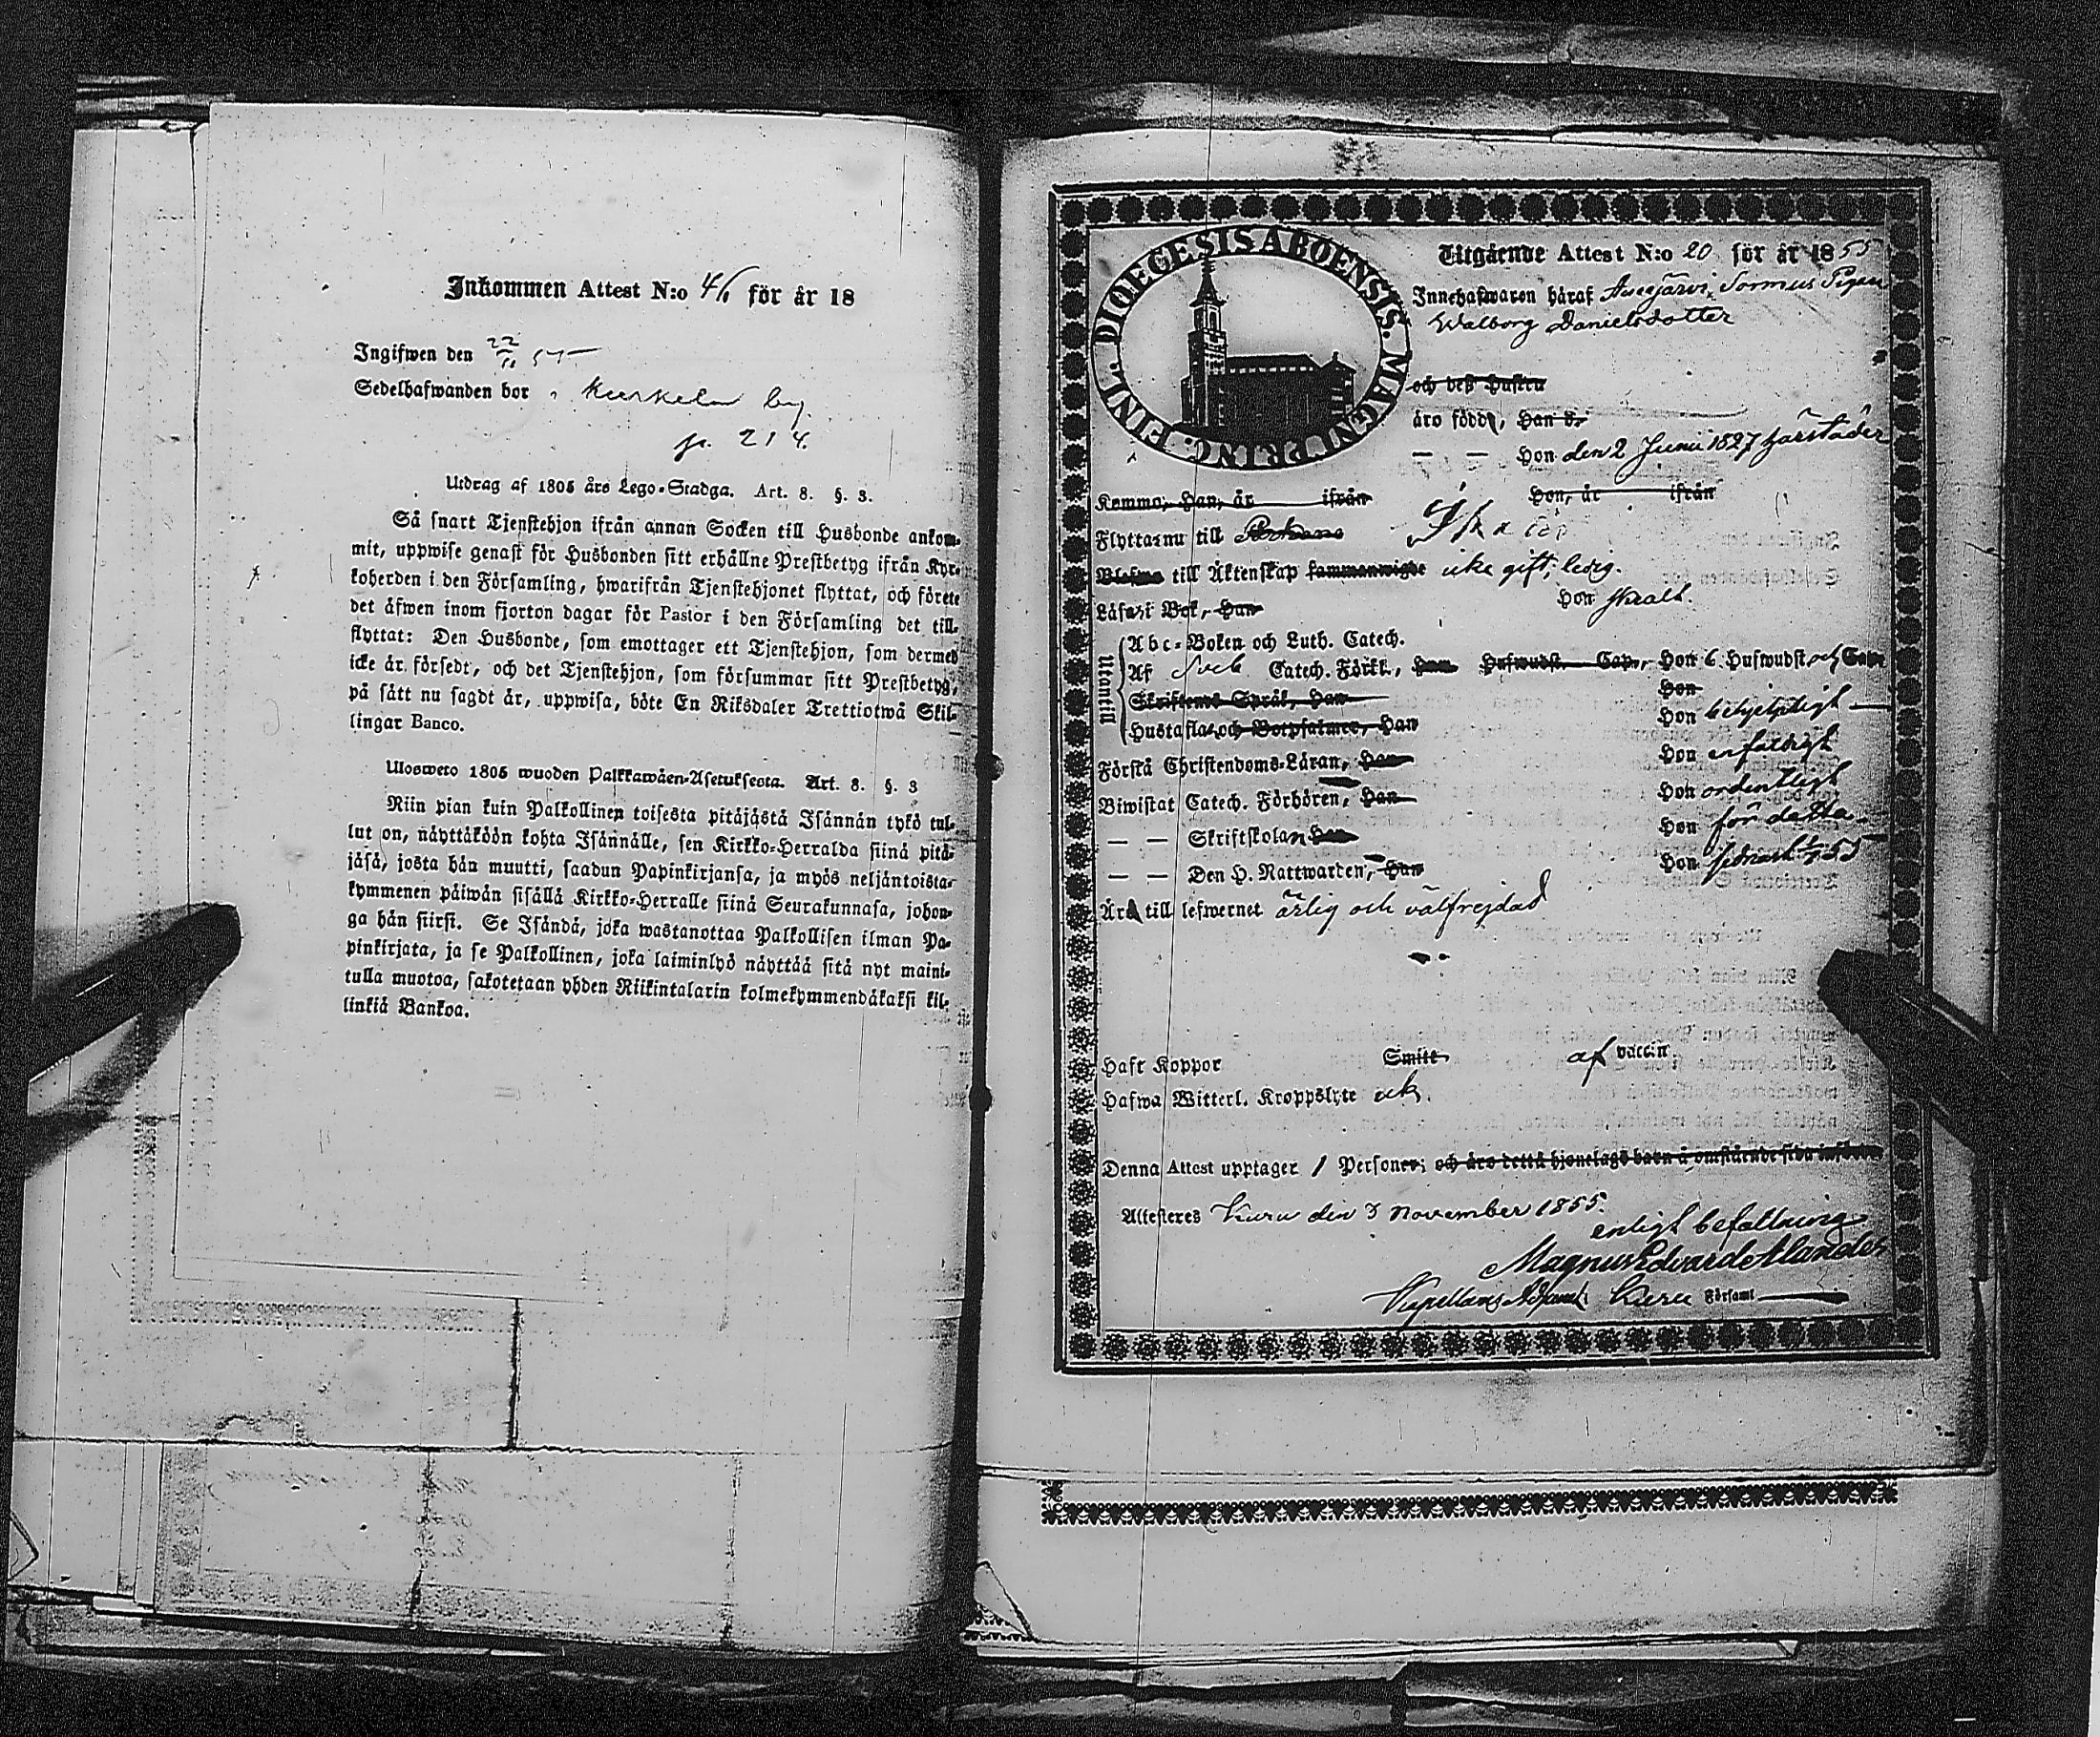 Inkommen Attest N:o 46 för år 18
Ingifwen den 22/11 55
Sedelhafwanden bor i Kurkela by
p. 214.
Utdrag af 1805 års Lego-Stadga. Art. 8. §. 3.
Så snart Tjenstehjon ifrån annan Socken till Husbonde ankom-
mit, uppwise genast för Husbonden sitt erhållne Prestbetyg ifrån Kyr-
koherden i den Församling, hwarifrån Tjenstehjonet flyttat, och förete
det äfwen inom fjorton dagar för Pastor i den Församling det till-
flyttat: Den Husbonde, som emottager ett Tjenstehjon, som dermed
icke är försedt, och det Tjenstehjon, som försummar sitt Prestbetyg,
på sätt nu sagdt är, uppwisa, böte En Riksdaler Trettiotwå Skil-
lingar Banco.
Ulosweto 1805 wuoden Palkkawäen-Asetuksesta. Art. 8. §. 3
Niin pian kuin Palkollinen toisesta pitäjästä Isännän tykö tul-
lut on, näyttäköön kohta Isännälle, sen Kirkko-Herralda siinä pitä-
jäsä, josta hän muutti, saadun Papinkirjansa, ja myös neljäntoista-
kymmenen päiwän sisällä Kirkko-Herralle siinä Seurakunnasa, johon-
ga hän siirst. Se Isändä, joka wastanottaa Palkollisen ilman Pa-
pinkirjata, ja se Palkollinen, joka laiminlyö näyttää sitä nyt maini-
tulla muotoa, sakotetaan yhden Riikintalarin kolmekymmendäkaksi kil-
linkiä Bankoa.
DIOEGESIS ABOENSIS. MAGNI PRINC. FINL.
Utgående Attest N:o 20 för år 1855
Innehafwaren häraf Aurejärvi, Sormus Pigan
Walborg Danielsdotter
och dess hustru
äro födde, Han d.
— — Hon den 2 Junii 1827 härstädes
Kommo, Han, år ifrån Hon, år ifrån
Flytta nu till Ikalis
till Äktenskap sammanwigde icke gift; ledig.
Läsa i Bok, Han Hon swalt.
Utantill
Abc-Boken och Luth. Catech.
Af Sveb. Catech. Förkl., Han Hufwudst. Cap., Hon 6 Hufwudst och Cap.
Skriftenes Språk, Han Hon
Hustaflan och Botpsalmer, Han Hon behjelpligt
Förstå Christendoms-Läran, Han Hon enfaldigt
Biwistat Catech. Förhören, Han Hon ordentligt
— — Skriftskolan Han Hon för detta.
— — Den H. Nattwarden, Han Hon
Är till lefwernet ärlig och välfrejdad
Haft Koppor Smitt- af vaccin.
Hafwa Witterl. Kroppslyte ick.
Denna Attest upptager 1 Personer; och äro detta hjonelags barn å omstående sida införde
Attesteres Kuru den 3 November 1855.
enligt befallning
Magnus Edvard Alander
Kapellans Adjunkt i Kuru Församl